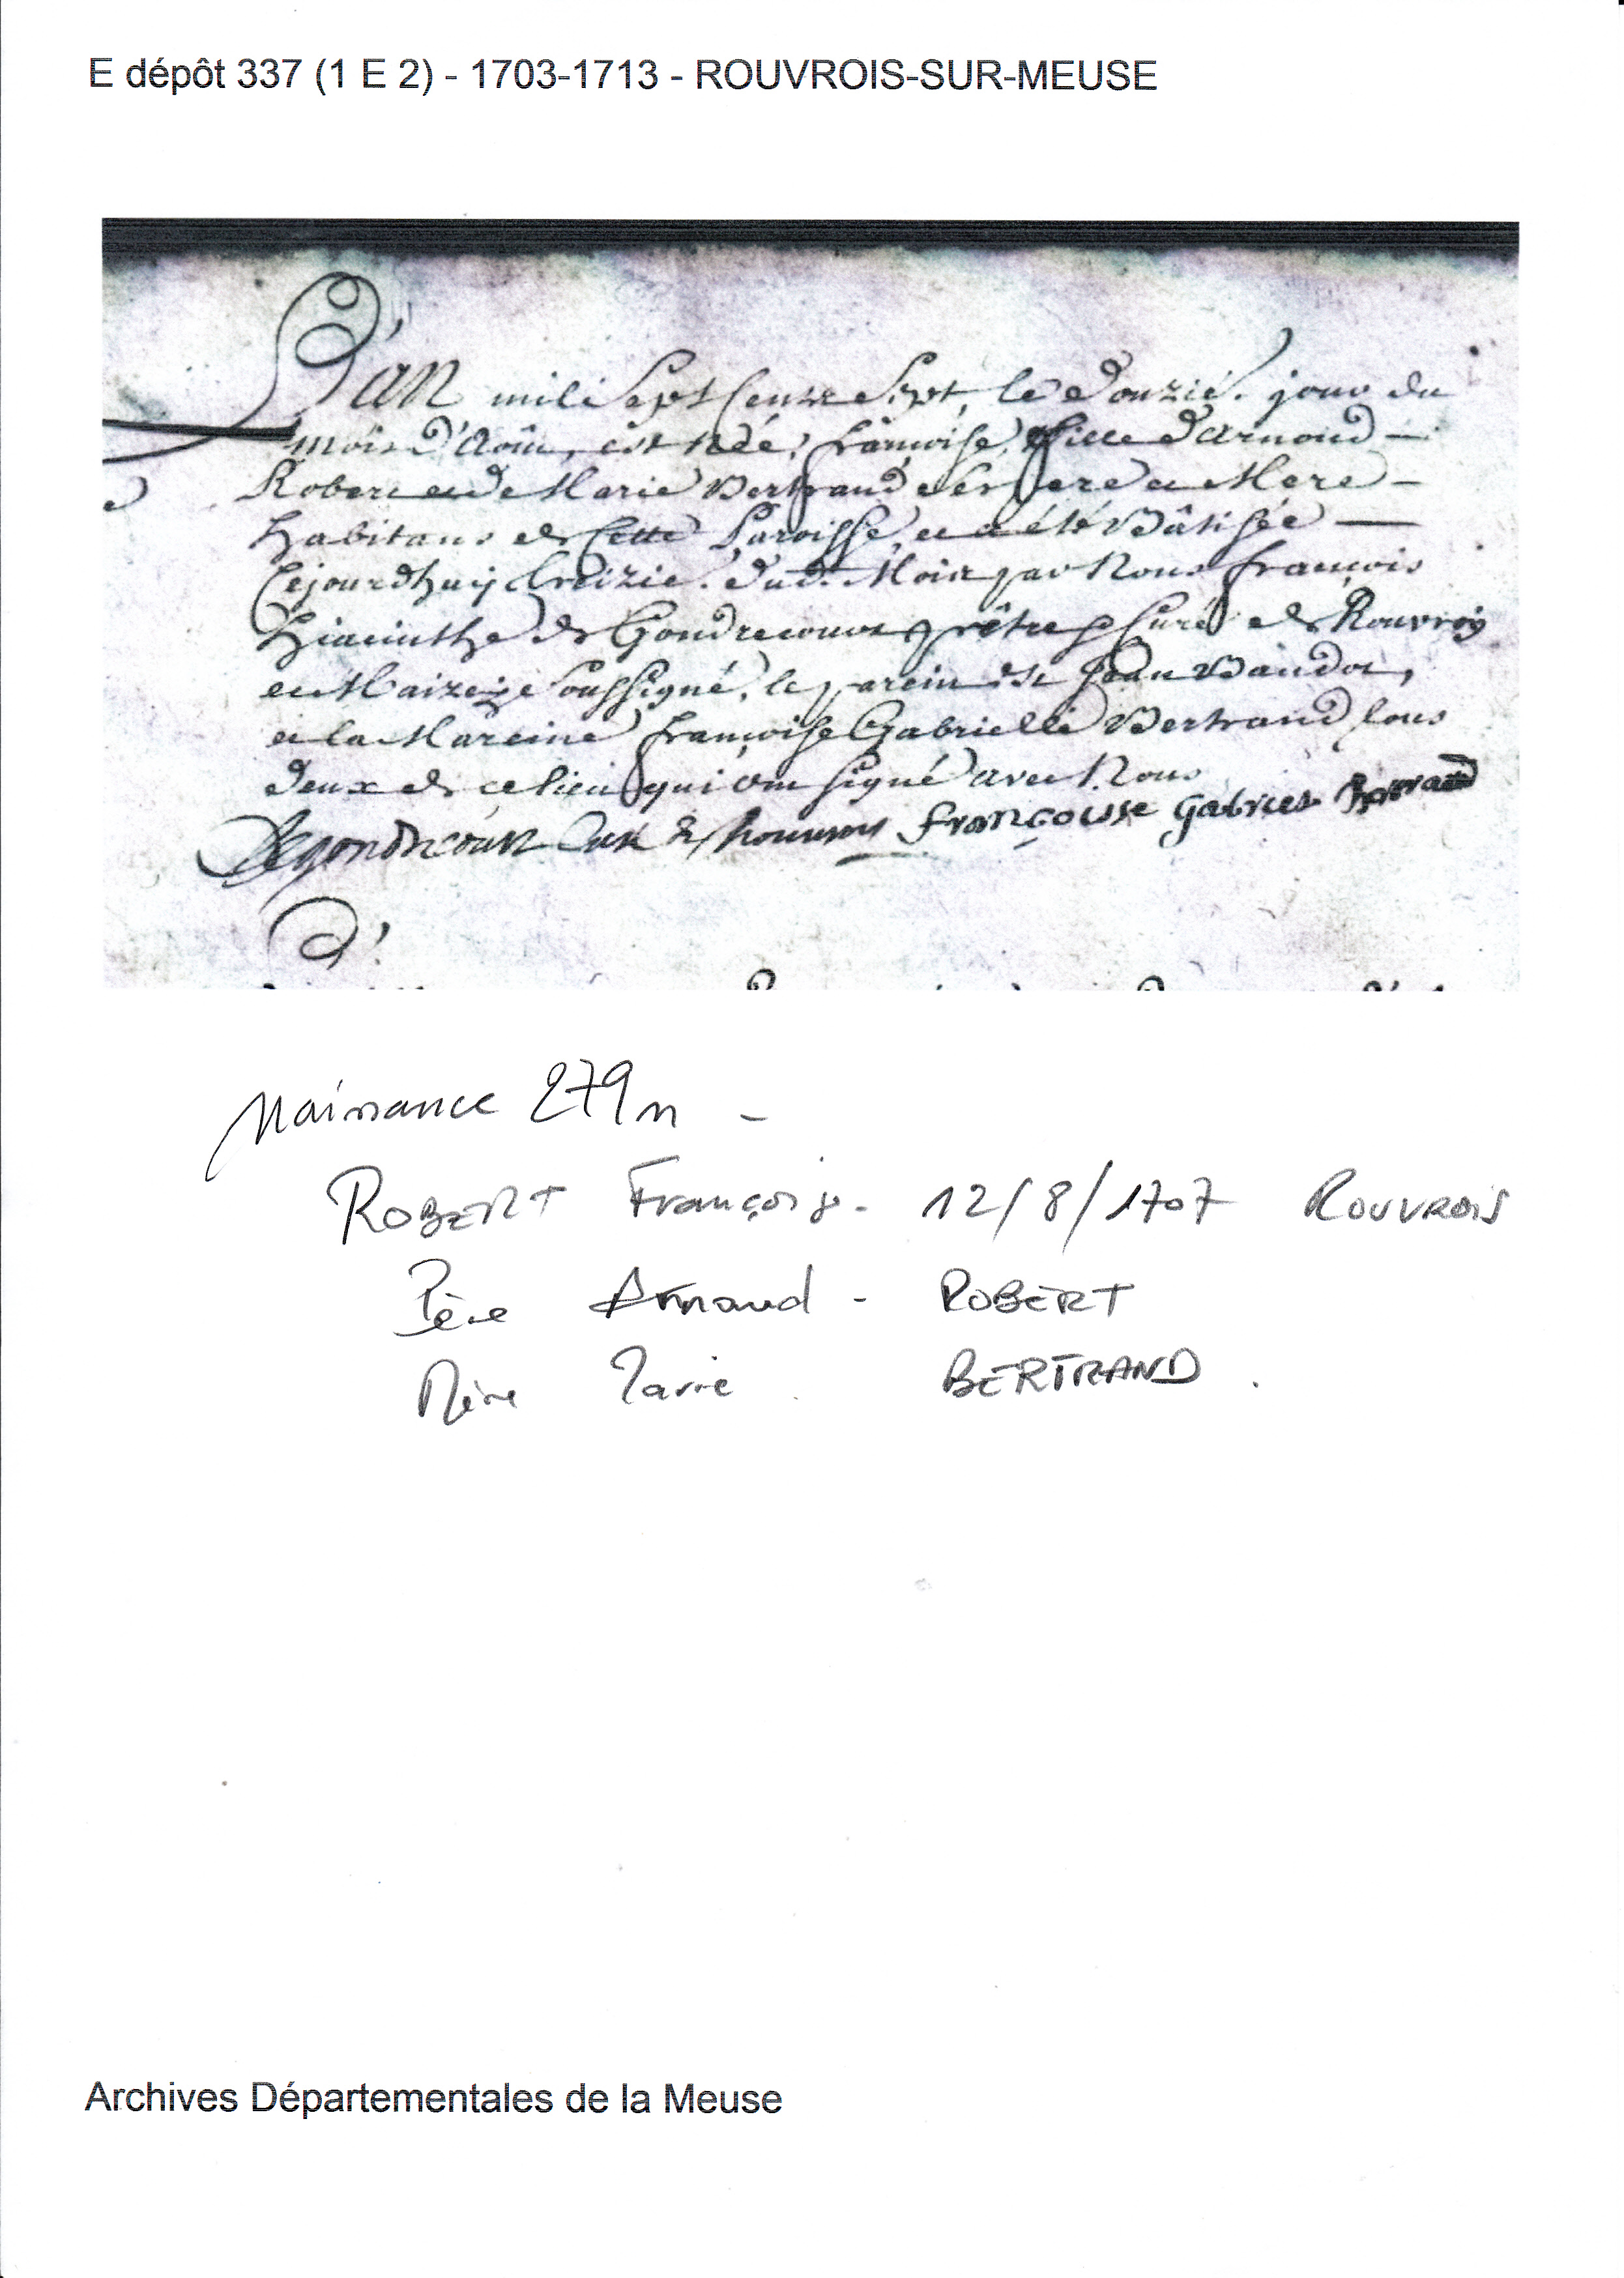 E dépôt 337 (1 E 2) - 1703-1713 - ROUVROIS-SUR-MEUSE
L'an mile Sept Cents Sept, le douzié. jour du
mois d'Aoûst, est Née, françoise, fille d'Arnoud —
Robert et de Marie Bertrand ses Pere et Mere —
habitans de Cette Paroisse, et a été Bâtisée —
Cejourdhuij treizié. dud. Mois par Nous françois
hiacinthe de Gondrecourt prêtre Curé de Rouvroy
et Maizeije soussigné, le parein est Jean Baudot,
et la Mareine françoise Gabrielle Bertrand tous
deux de ce lieu qui ont signé avec Nous
Degondrecourt Curé de Rouvrois françoisse Gabriel Bertrand
Naissance 279 m -
ROBERT Françoise. 12/8/1707 ROUVROIS
Père Arnaud - ROBERT
Mère Marie . BERTRAND .
Archives Départementales de la Meuse